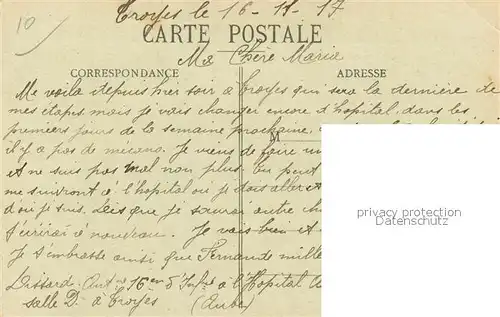 10
Troyes le 16-11-17
CARTE POSTALE
Ma Chère Marie
CORRESPONDANCE
ADRESSE
Me voila depuis hier soir à Troyes qui sera la dernière de
mes étapes mais je vais changer encore d'hopital dans les
premiers jours de la semaine prochaine,
il y a pas de mécano. Je viens de faire un
M
et ne suis pas mal non plus. On peut
me suivront à l'hopital ou je dois aller et
d'où je suis. Dès que je saurai autre ch
t'écrirai à nouveau. Je vais bien et
Je t'embrasse ainsi que Fernande mille
à l'Hopital
salle D. à Troyes (Aube)
privacy protection
Datenschutz